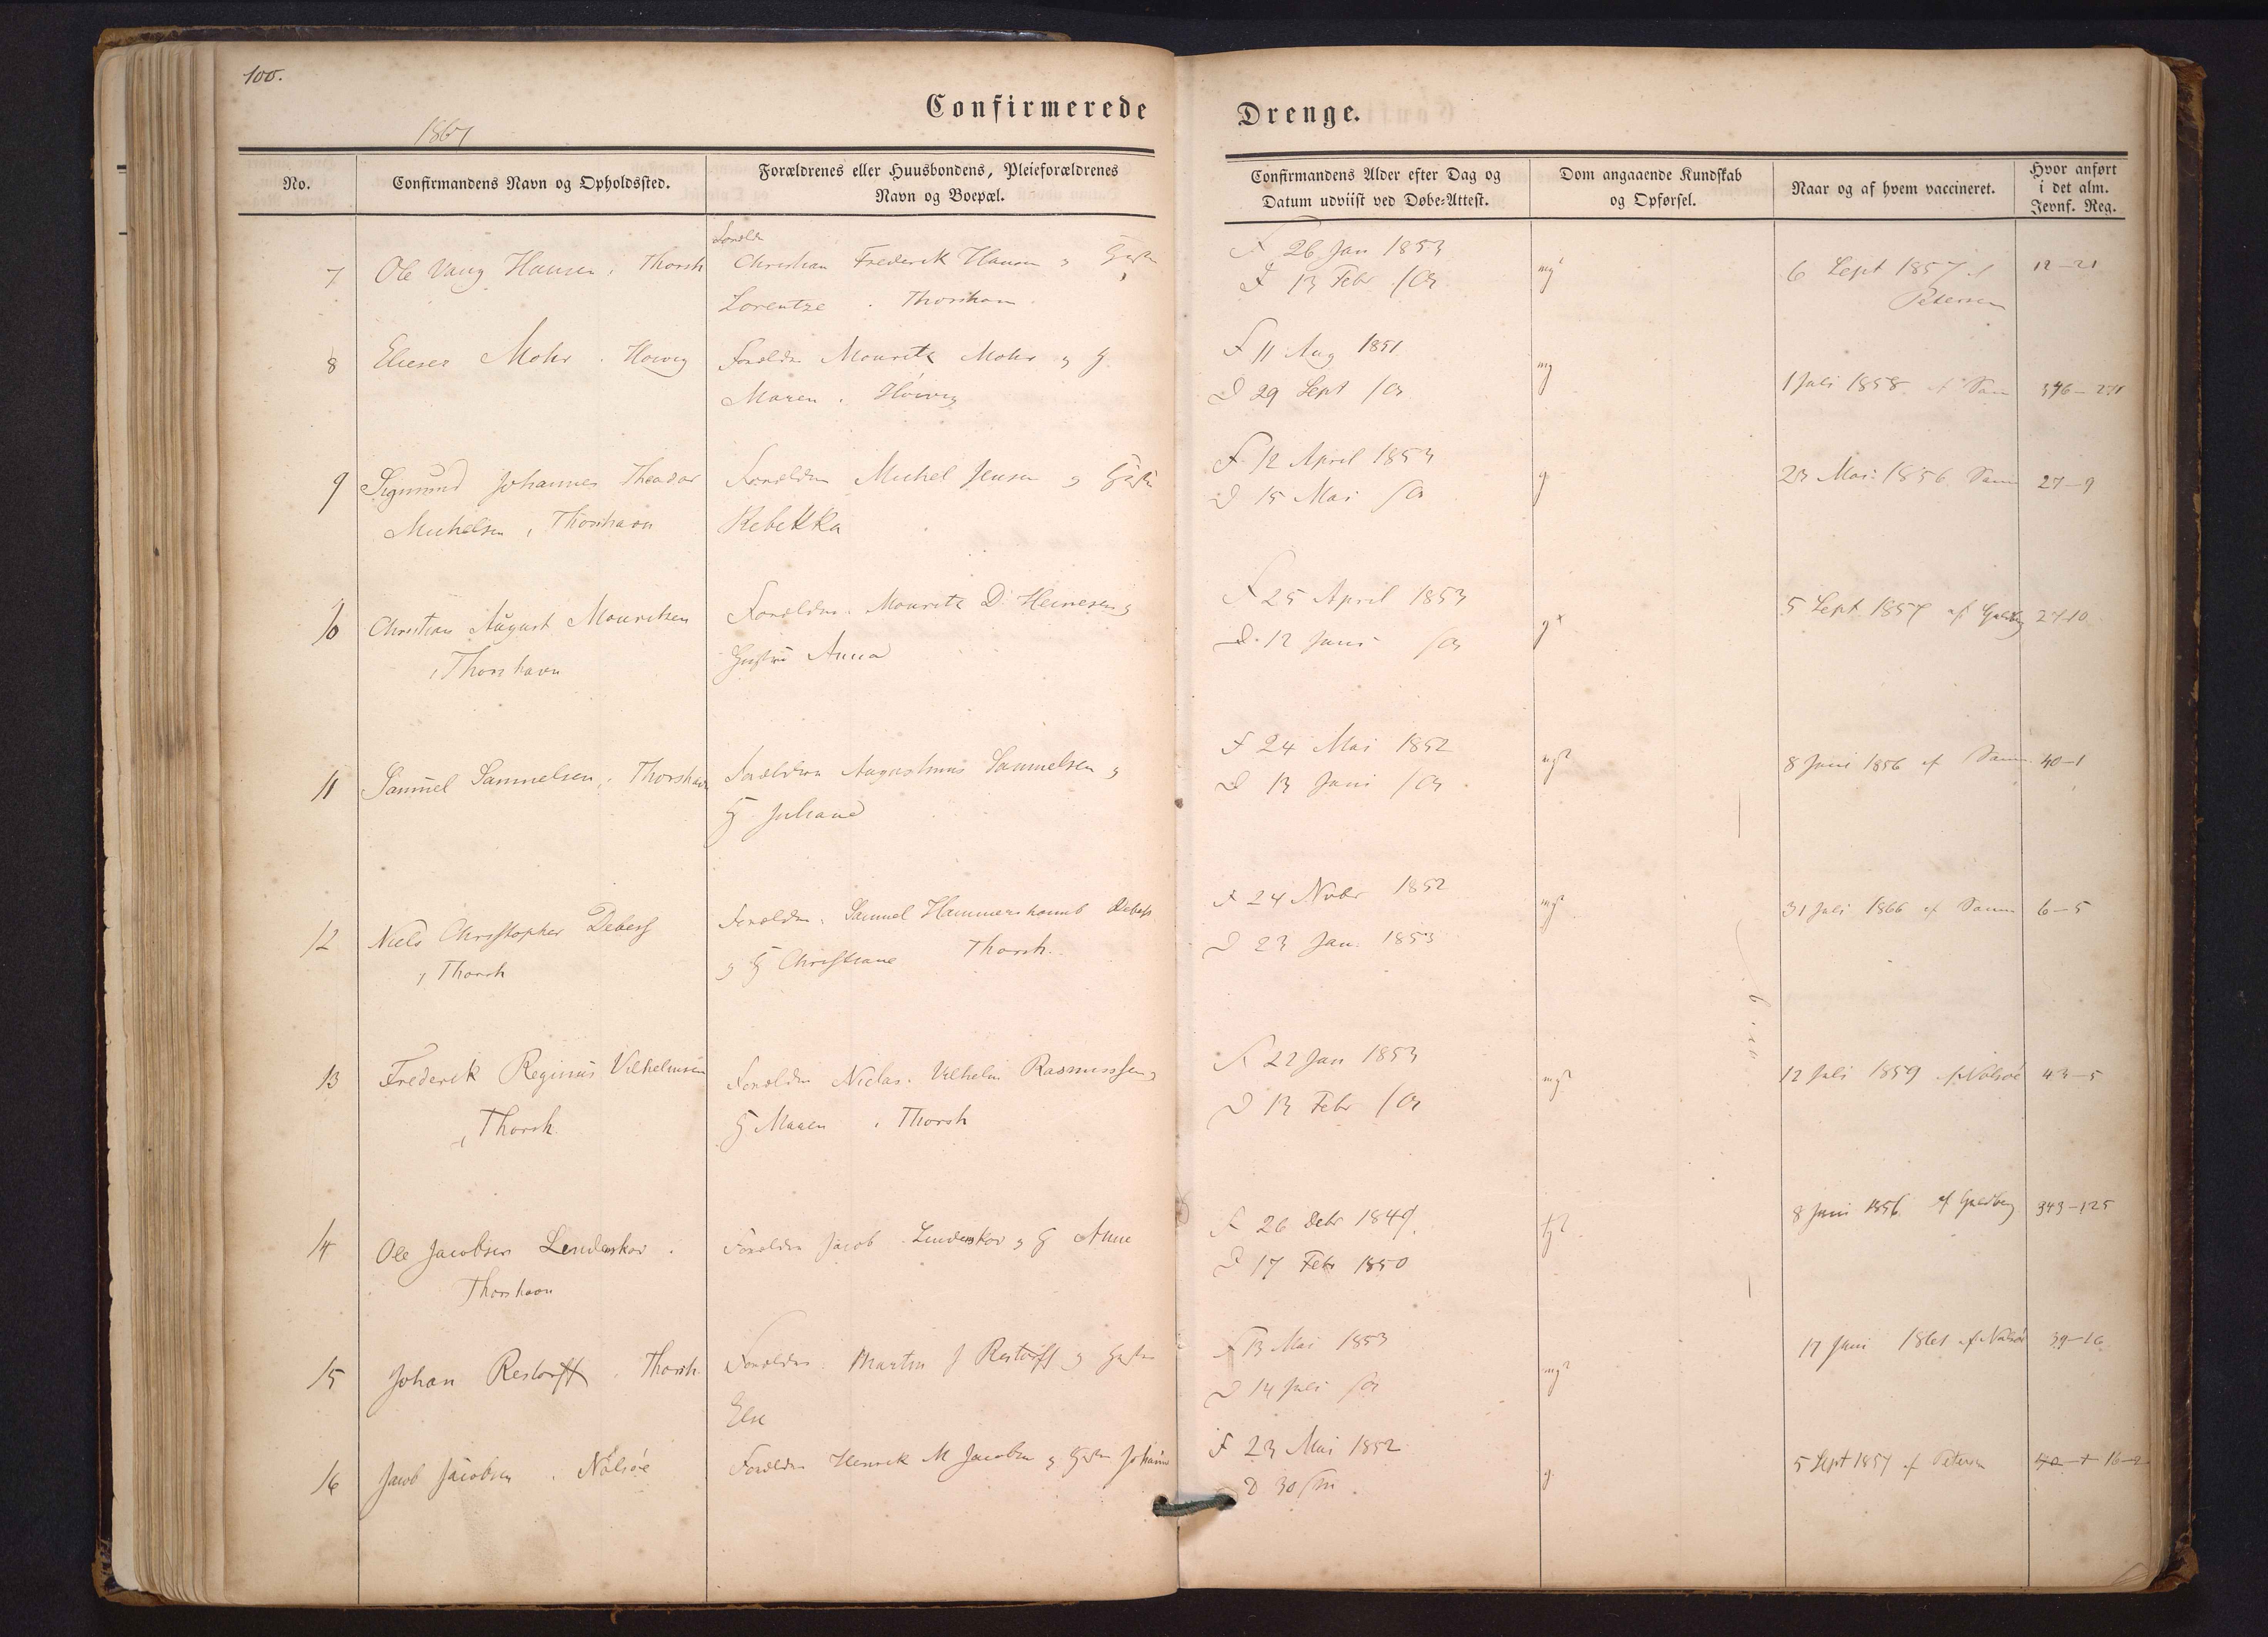 100.
Confirmerede Drenge.
1867
No.
Confirmandens Navn og Opholdssted.
Forældrenes eller Huusbondens, Pleieforældrenes
Navn og Boepæl.
Confirmandens Alder efter Dag og
Datum udviist ved Døbe-Attest.
Dom angaaende Kundskab
og Opførsel.
Naar og af hvem vaccineret.
Hvor anført
i det alm.
Jevnf. Reg.
7 Ole Vang Hansen i Thorsh
Christian Frederik Hansen
Lorentze i Thorshavn
F 26 Jan 1853
D 13 Febr
mg
6 Sept 1857 af
Petersen
12-21
8 Elieser Mohr i Hoivig
Forældre Mouritz Mohr og H
Maren i Høivig
F 11 Aug 1851
D 29 Sept
mg
1 Juli 1858 af
376-221
9 Sigmund Johannes Theodor
Michelsen i Thorshavn
Forældre Michel Jensen og Hustru
Rebekka
F 12 April 1853
D 15 Mai
g
23 Mai 1856
27-9
10 Christian August Mouritsen
i Thorshavn
Forældre Mouritz D Heinesen og
Hustru Anna
F 25 April 1853
D 12 Juni
g
5 Sept 1857 af
27-10
11 Samuel Samuelsen i Thorshavn
Forældre Augustinus Samuelsen og
H Juliane
F 24 Mai 1852
D 13 Juni
mg
8 Juni 1856 af
40-1
12 Niels Christopher Debess
i Thorsh
Forældre Samuel Hammershaimb Debess
og H Christiane Thorsh.
F 24 Nvbr 1852
D 23 Jan. 1853
mg
31 Juli 1866 af
6-5
13 Frederik Reginus Vilhelmsen
i Thorsh.
Forældre Niclas Vilhelm Rasmussen og
H Maren i Thorsh
F 22 Jan 1853
D 13 Febr
mg
12 Juli 1859 af Nolsøe
43-5
14 Ole Jacobsen Lenderskov i
Thorshavn
Forældre Jacob Lenderskov og H Anne
F 26 Debr 1849
D 17 Febr 1850
8 Juni 1856 af
343-125
15 Johan Restorff i Thorsh
Forældre Martin J Restorff og Hustru
Else
F 13 Mai 1853
D 14 Juli
mg
17 Juni 1861 af Nolsøe
39-16
16 Jacob Jacobsen i Nolsøe
Forældre Henrik M Jacobsen og Hustru Johanne
F 23 Mai 1852
D 30
g
5 Sept 1857 af Petersen
40-1 16-2